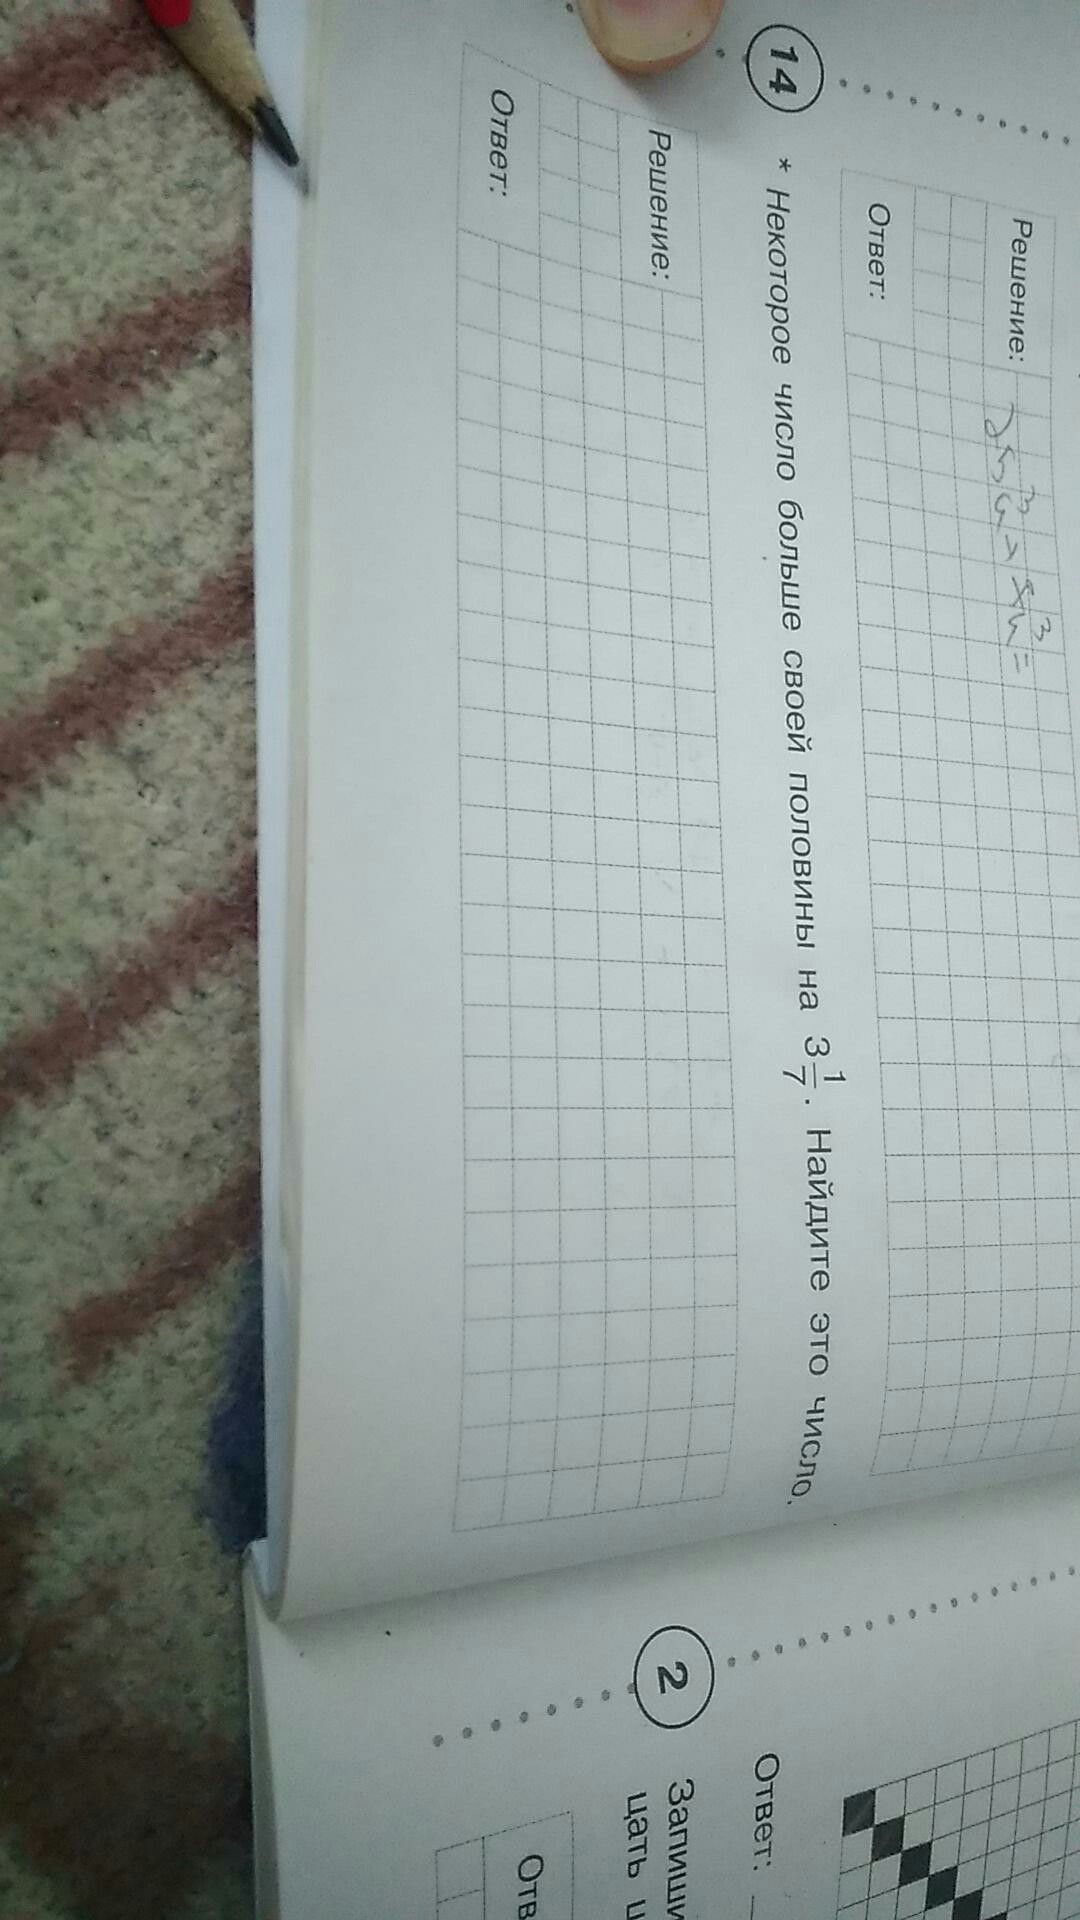 Решение:
Ответ:
14 * Некоторое число больше своей половины на 3 1/7. Найдите это число.
Решение:
Ответ:
Ответ:
2 Запиши
цать
Отв